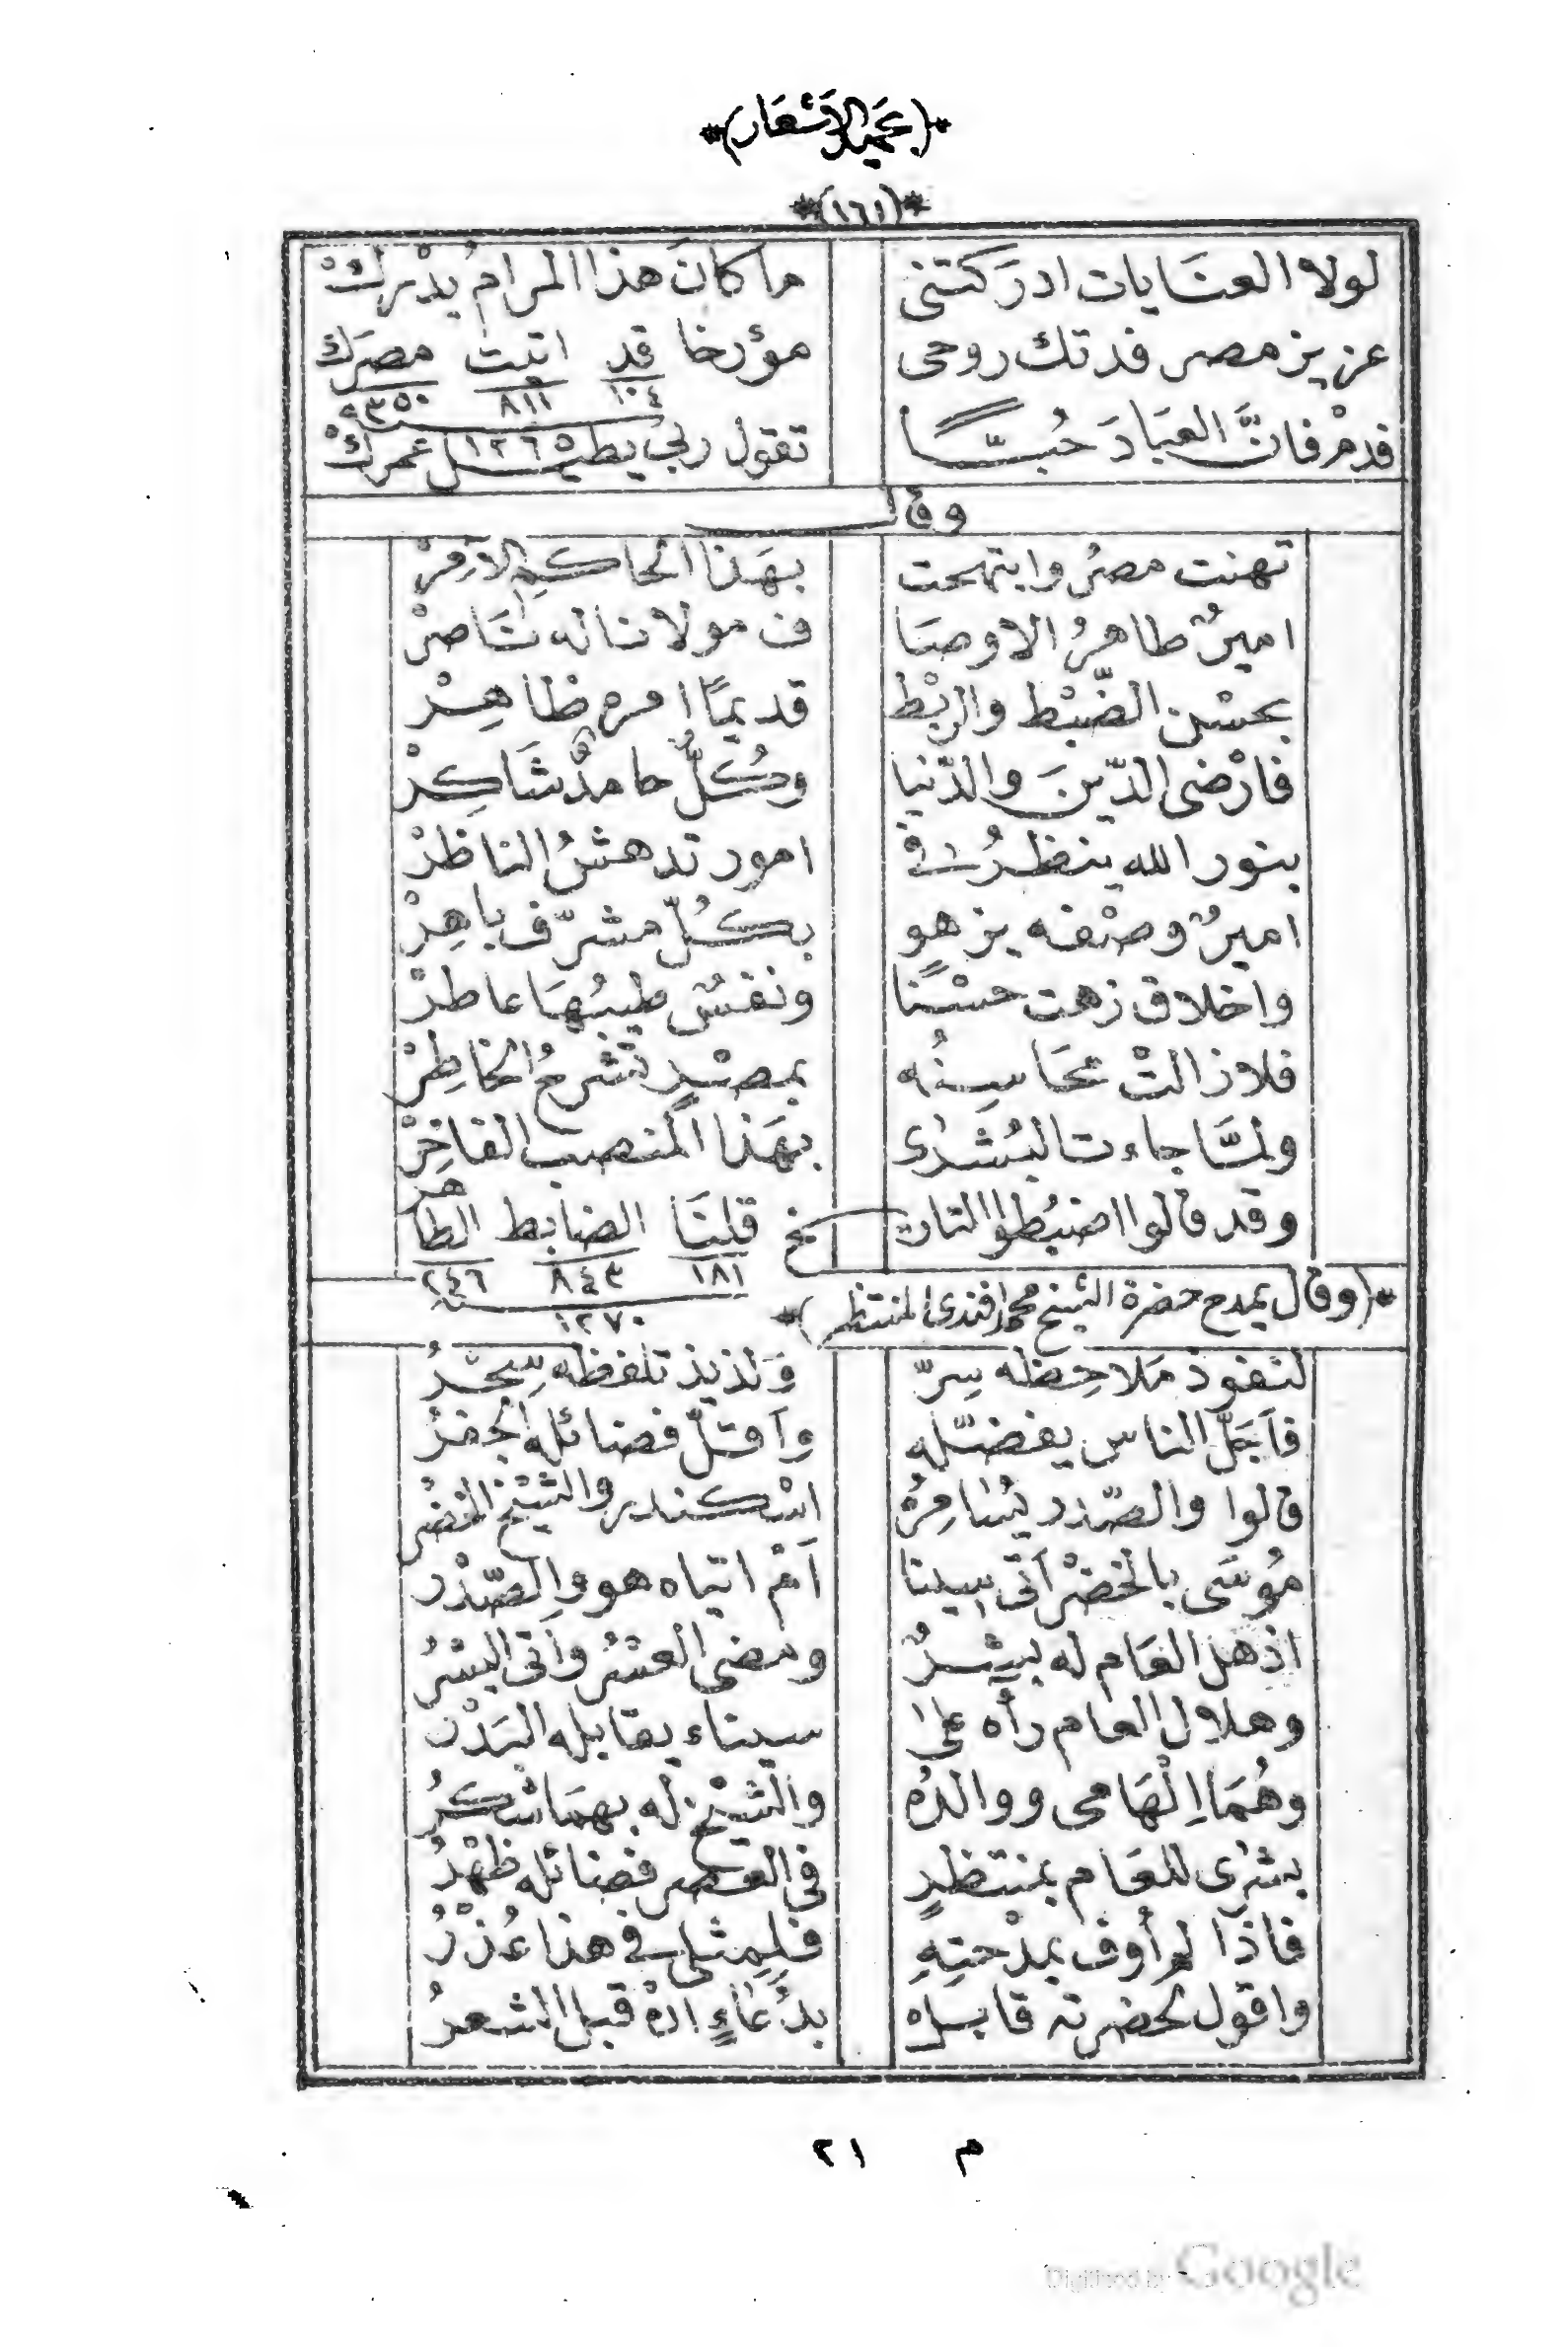 *(بحميد الاشعار)*
*(١٦١)*
لولا العنَايات ادرَكتنى ما كانَ هذا المرامُ يُدْركْ
عزيز مصر فدتك روحى مؤرخا قد اتيت مصرَك
١٠٤ ٨١١ ٣٥٠
قدمْ فانَّ العبَادَ حُبّـًا تقول ربى يطيـل عمركْ
١٢٦٥
وقال
تهنت مصرُ وابتهجت بهَذا الحاكم الآمرْ
اميرٌ طاهرُ الاوصَا ف مولانا له نَاصرْ
بحسْن الضّبْط والربْط قديمًا امره ظاهِرْ
فارْضى الدّينَ والدّنيا وكُلٌّ حامدٌ شَاكِرْ
بنور الله ينظرُ فى امور تدهشُ الناظرْ
اميرٌ وصْفه يزهو بكُلّ مشرّف باهِرْ
واخلاق زهت حسْنًا ونفسٌ طيبُهَا عاطرْ
فلا زالتْ محَاسِنُه بمصْرٍ تشْرحُ الخاطِرْ
ولمَّا جاءت البُشْرٰى بهَذا المنصب الفاخِرْ
وقد قالوا اضبُطوا التاريخ قلنَا الضابط الطاهر
١٨١ ٨٤٣ ٢٤٦
١٢٧٠
*(وقال يمدح حضرة الشيخ محمد افندى المنتظر)*
لنفوذ مَلاحِظه سِرّ وَلذيذ تلفظه سِحْرُ
فاَجَلّ الناس يفضّله واَقلّ فضائله الجفرُ
قالوا والصّدر يُسَامِرُهُ اسْكندر والشّيْخ الخضرُ
مُوسَى بالخضْر اَتى سينا اَمْ اتياه هو والصّدْر
اذ هل العَام له بِشْرٌ ومضى العسْرُ واَتى اليسْرُ
وهلال العام رأه علىٰ سيناء يقابله البَدْر
وهُمَا اِلْهَامى ووالدُه والشّيْخ له بهمَا شكرُ
بشرٰى للعَام بمنتظرٍ فى العصر فضائله ظهْرُ
فاذا لم أوف بمدْحتِهِ فلِمِثلى فى هذا عُذْرُ
واقول لحضرته قابله بدُعَاءٍ اذْ قبل الشعرُ
م ٢١
Digitized by Google